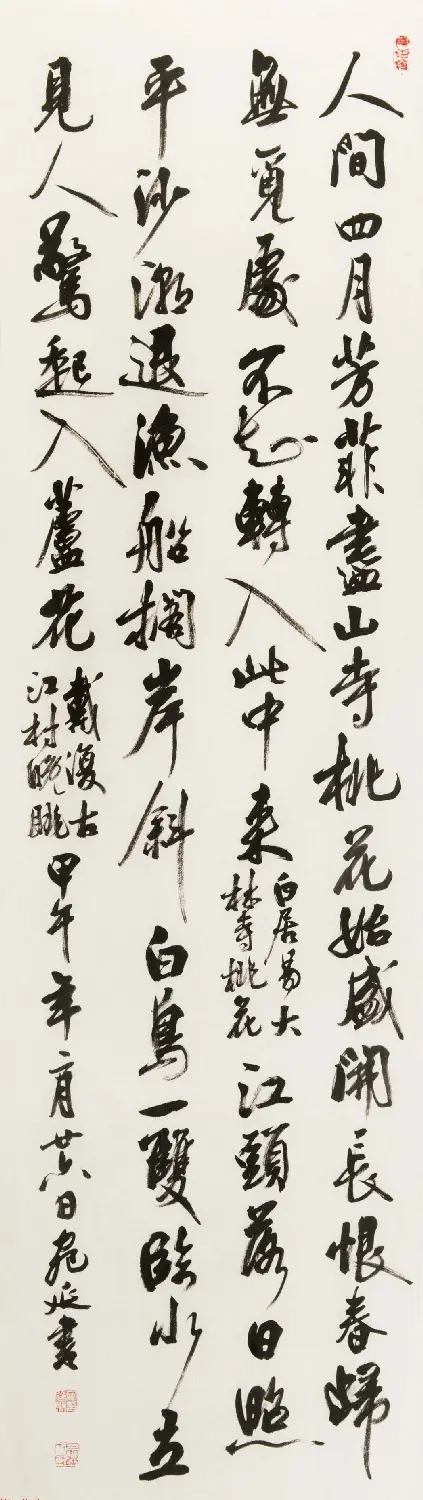 人間四月芳菲盡山寺桃花始盛開長恨春歸
無覓處不知轉入此中來
白居易大
林寺桃花
江頭落日照
平沙潮退漁船擱岸斜白鳥一雙臨水立
見人驚起入蘆花
戴復古
江村晚眺
甲午年二月廿六日書